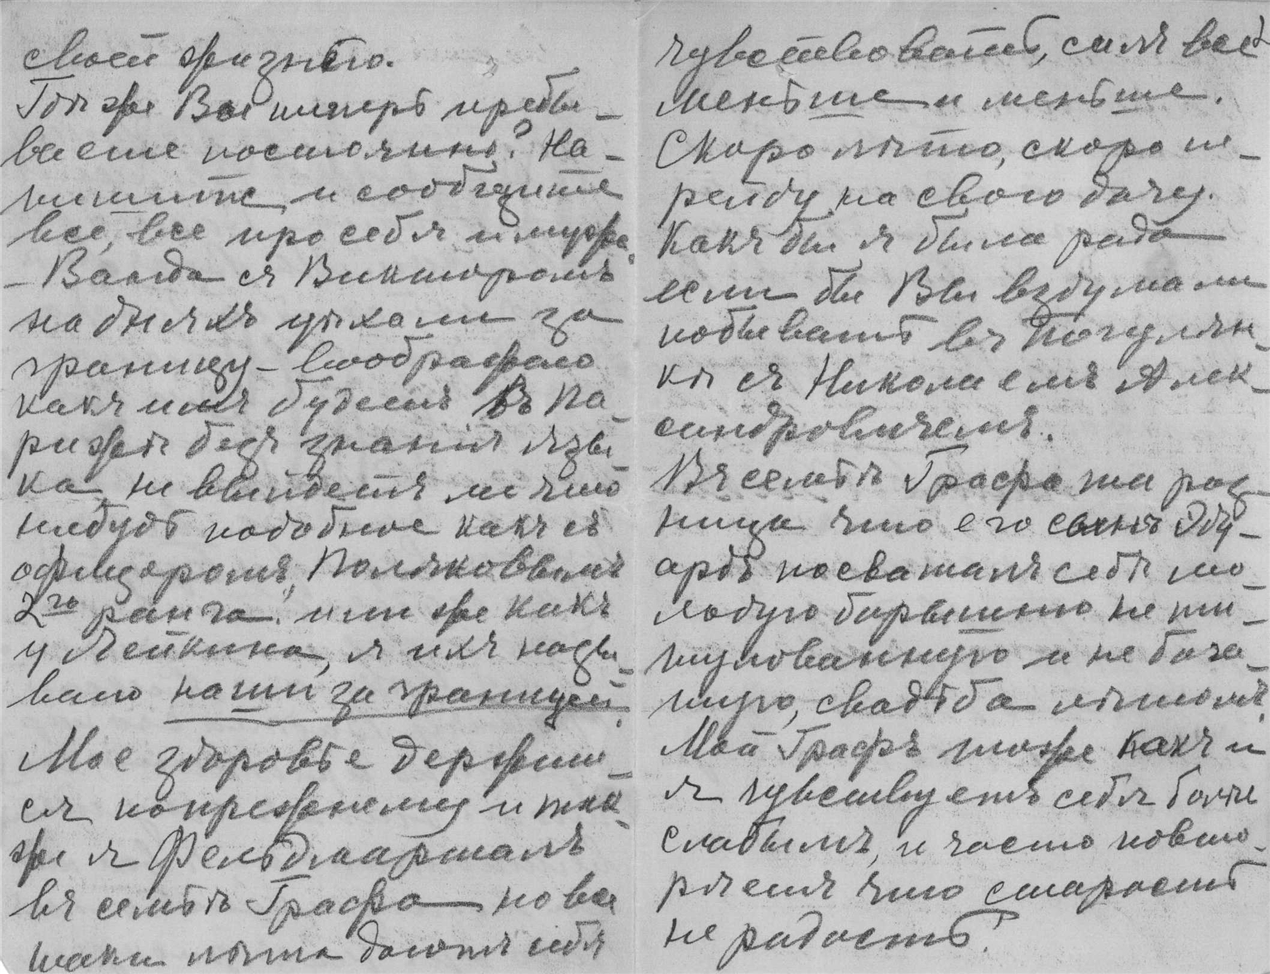 своей жизнью.
Гдѣ же Вы теперь пребы-
ваете постоянно? На-
пишите, и сообщите
все, все про себя и мужа.
– Ванда съ Викторомъ
на дняхъ уѣхали за
границу – воображаю
какъ имъ будетъ въ Па-
рижѣ безъ знанія язы-
ка, не выйдетъ ли что
нибудь подобное какъ съ
офицеромъ, Поляковымъ
2го ранга, или же какъ
у Лейкина, я ихъ назы-
ваю наши за границей.
Мое здоровье держит-
ся попрежнему и так-
же я Фельдмаршалъ
въ семьѣ Графа но все
таки лѣта даютъ себя
чувствовать, силъ все
меньше и меньше.
Скоро лѣто, скоро пе-
рейду на свою дачу.
Какъ бы я была рада
если бы Вы вздумали
побывать въ Погулян-
кѣ съ Николаемъ Алек-
сандровичемъ.
Въ семьѣ Графа та раз-
ница что его сынъ Эду-
ардъ посваталъ себѣ мо-
лодую барышню не ти-
тулованную и не бога-
тую, свадьба лѣтомъ.
Мой Графъ тоже какъ и
я чувствуетъ себя болѣе
слабымъ, и часто повто-
ряетъ что старость
не радость!